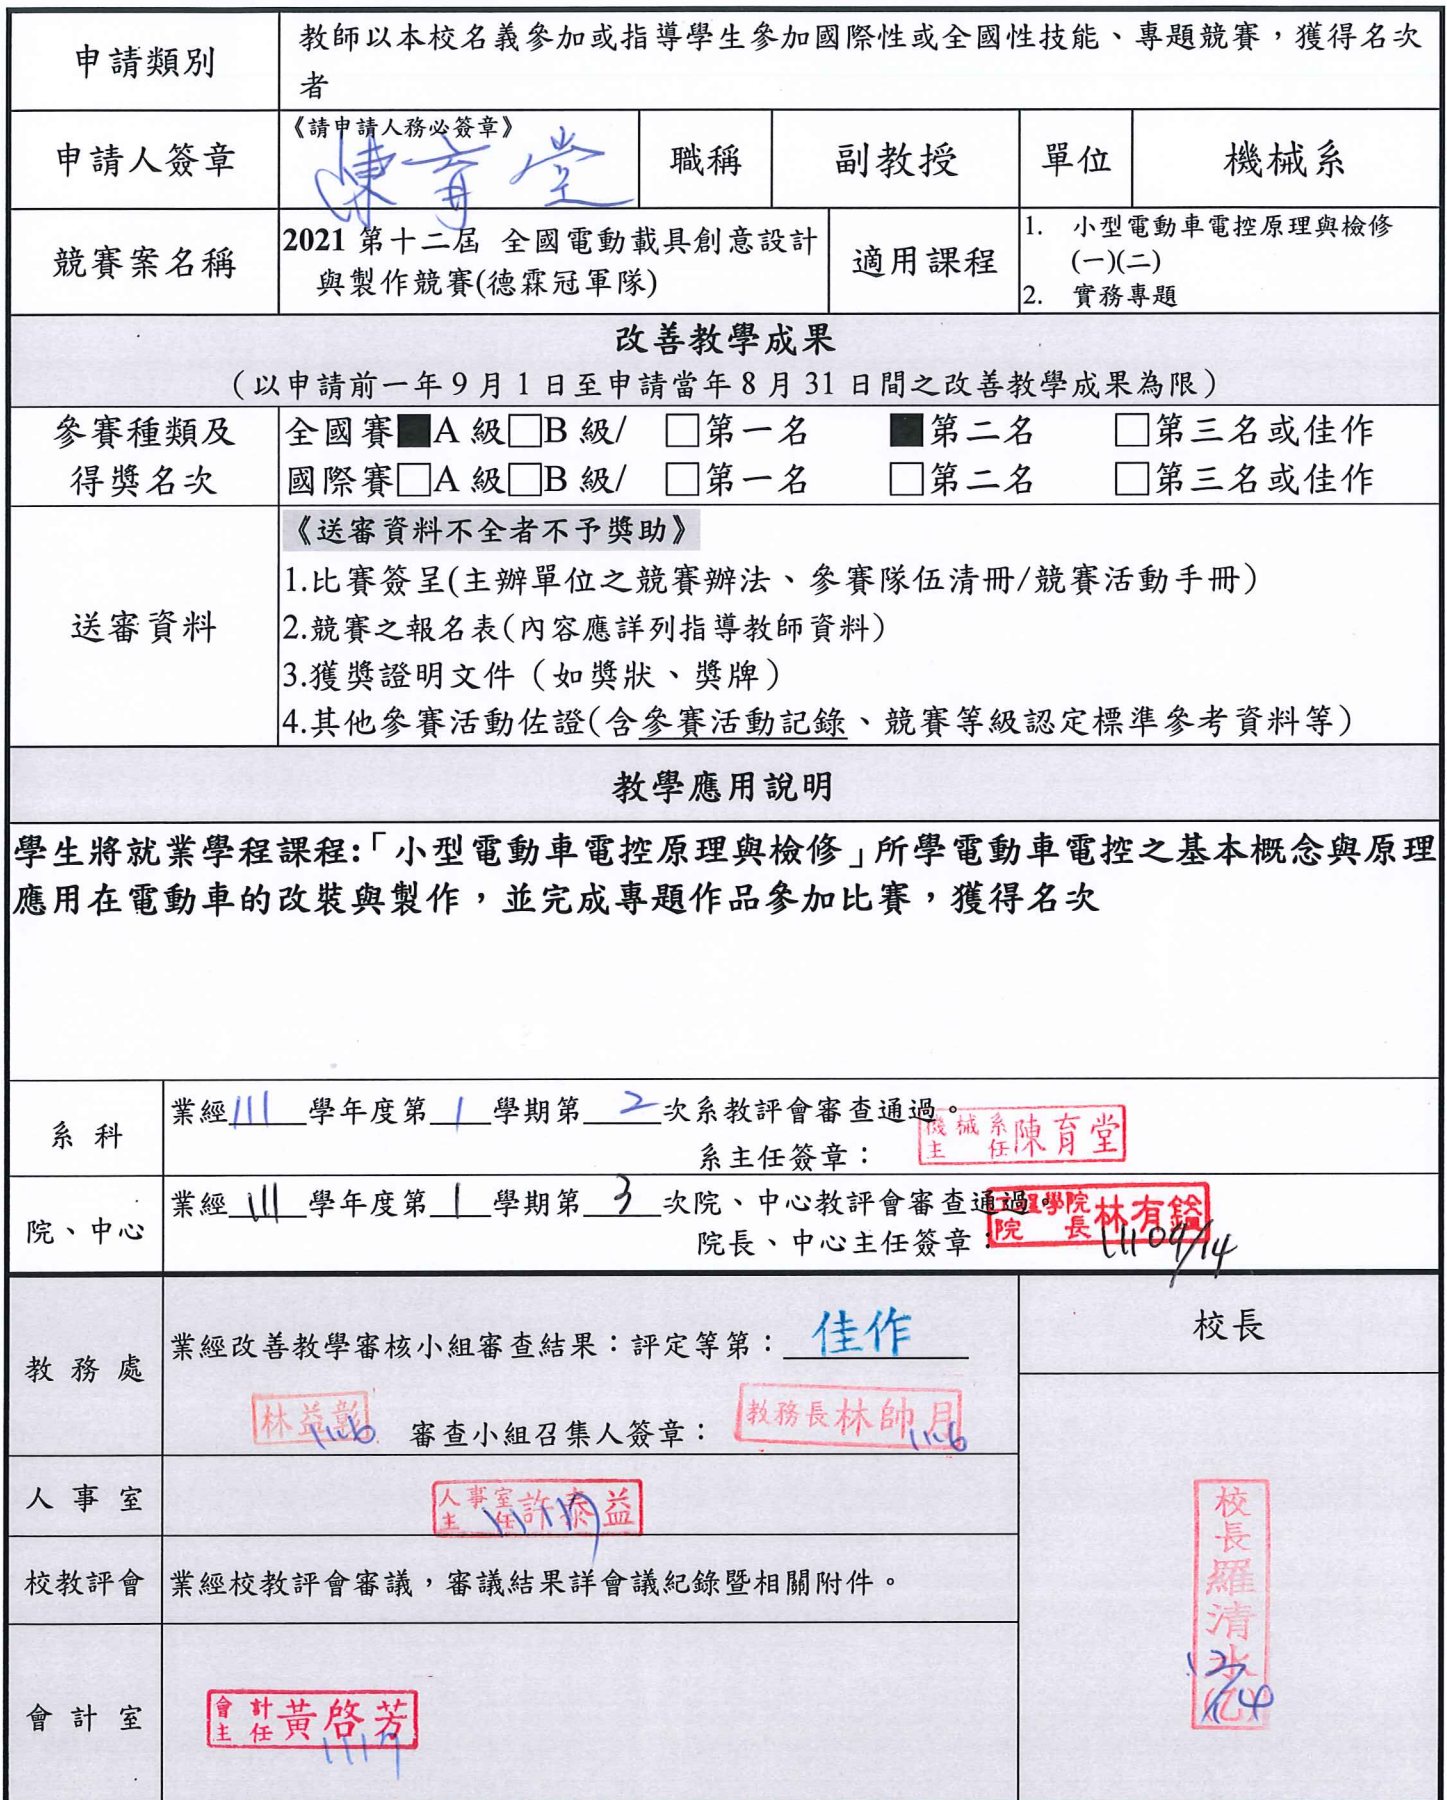 申請類別
教師以本校名義參加或指導學生參加國際性或全國性技能、專題競賽，獲得名次
者
申請人簽章
《請申請人務必簽章》
陳育堂
職稱
副教授
單位
機械系
競賽案名稱
2021 第十二屆 全國電動載具創意設計
與製作競賽(德霖冠軍隊)
適用課程
1. 小型電動車電控原理與檢修
(一)(二)
2. 實務專題
改善教學成果
（以申請前一年9月1日至申請當年8月31日間之改善教學成果為限）
參賽種類及
得獎名次
全國賽■A 級□B 級/ □第一名 ■第二名 □第三名或佳作
國際賽□A 級□B 級/ □第一名 □第二名 □第三名或佳作
送審資料
《送審資料不全者不予獎助》
1.比賽簽呈(主辦單位之競賽辦法、參賽隊伍清冊/競賽活動手冊)
2.競賽之報名表(內容應詳列指導教師資料)
3.獲獎證明文件（如獎狀、獎牌）
4.其他參賽活動佐證(含參賽活動記錄、競賽等級認定標準參考資料等)
教學應用說明
學生將就業學程課程:「小型電動車電控原理與檢修」所學電動車電控之基本概念與原理
應用在電動車的改裝與製作，並完成專題作品參加比賽，獲得名次
系科
業經111學年度第1學期第2次系教評會審查通過。
系主任簽章：
機械系主任陳育堂
院、中心
業經111學年度第1學期第3次院、中心教評會審查通過。
院長、中心主任簽章：
院長林有鎰
111 09/14
教務處
業經改善教學審核小組審查結果：評定等第：佳作
林益彰
審查小組召集人簽章：
教務長林帥月
校長
人事室
人事室主任許泰益
校教評會
業經校教評會審議，審議結果詳會議紀錄暨相關附件。
校長羅清水(乙)
會計室
會計主任黃啓芳